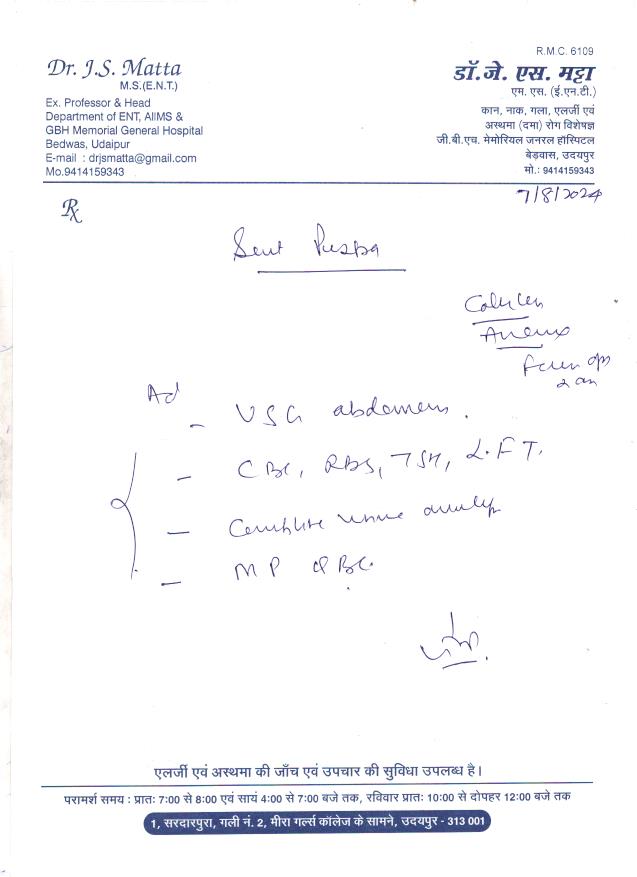 R.M.C. 6109
Dr. J.S. Matta
M.S.(E.N.T.)
Ex. Professor & Head
Department of ENT, AIIMS &
GBH Memorial General Hospital
Bedwas, Udaipur
E-mail : drjsmatta@gmail.com
Mo.9414159343
डॉ.जे. एस. मट्टा
एम. एस. (ई.एन.टी.)
कान, नाक, गला, एलर्जी एवं
अस्थमा (दमा) रोग विशेषज्ञ
जी.बी.एच. मेमोरियल जनरल हॉस्पिटल
बेड़वास, उदयपुर
मो.: 9414159343
7/8/2024
Rx
Smt Puspa
Ad
- USG abdomen.
- CBC, RBS, TSH, L.F.T.
- Complete urine
- MP QBC.
एलर्जी एवं अस्थमा की जाँच एवं उपचार की सुविधा उपलब्ध है।
परामर्श समय : प्रातः 7:00 से 8:00 एवं सायं 4:00 से 7:00 बजे तक, रविवार प्रातः 10:00 से दोपहर 12:00 बजे तक
1, सरदारपुरा, गली नं. 2, मीरा गर्ल्स कॉलेज के सामने, उदयपुर - 313 001